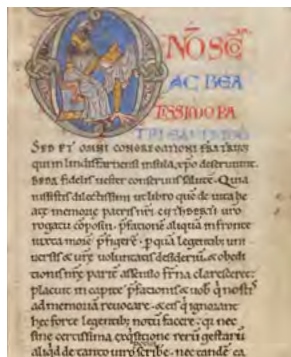 NO SCO
AC BEA
TISSIMO PA
TRI EADFRIDO
SED ET OMNI CONGREGATIONI FRATRUM
qui in lindisfarnensi insula xpo deseruiunt.
BEDA fidelis uester conseruus salutē. Quia
iussistis dilectissimi ut libro quē de uita be
atę memorię patris nri
rogatu cōposui. p̄fationē aliquā in fronte
iuxta morē p̄figerē. p quā legentib; uni
uersis & urę uoluntatis desideriū. & obedi
tionis nrę parit̄ assensio frna claresceret.
placuit in capite p̄fationis & uob q̇ nostis
ad memoriā reuocare. & eis q̇ ignorant
hęc forte legentib; notū facere. qa nec
sine certissima exq̇sitione rerū gestarū
aliqd de tanto uiro scribe. nec